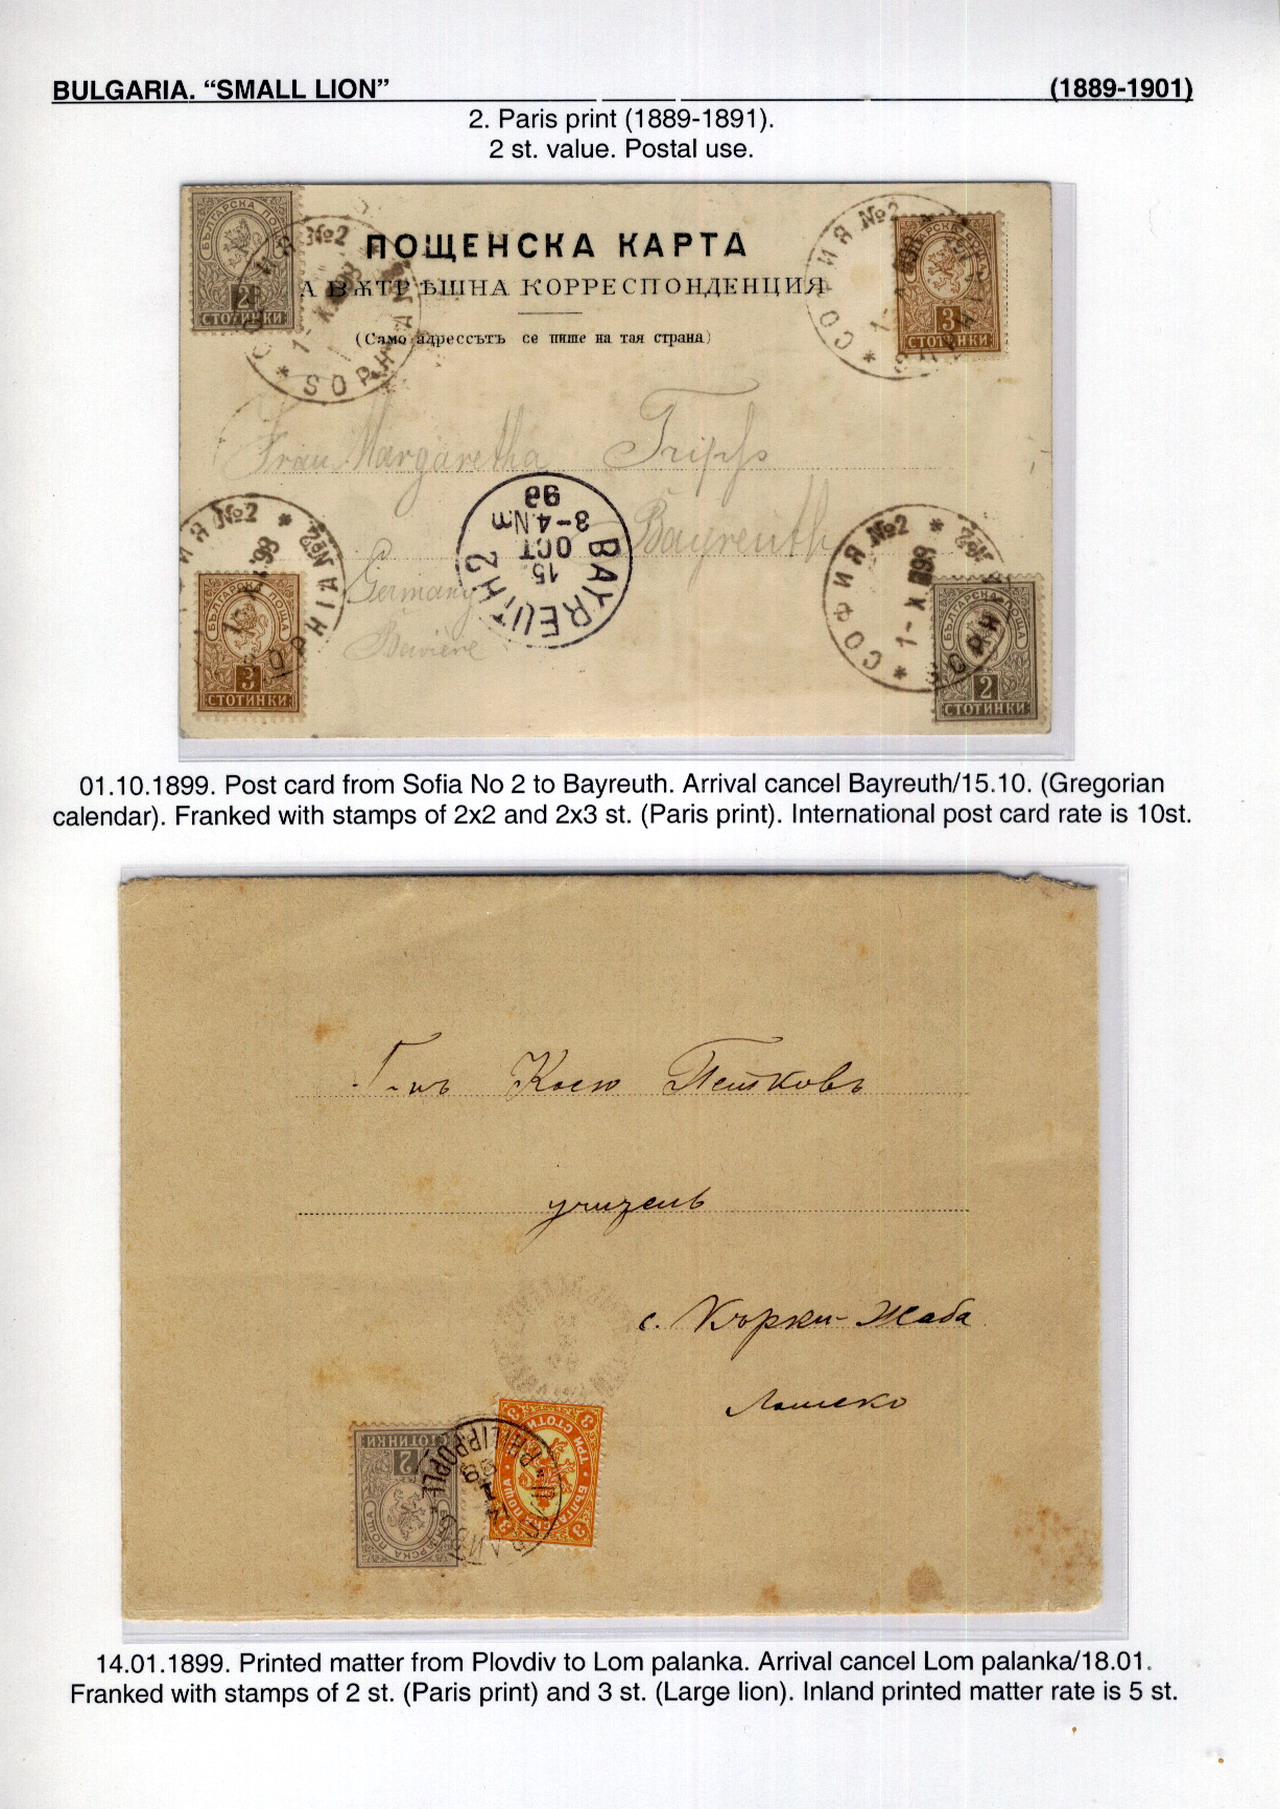 BULGARIA. “SMALL LION” (1889-1901)
2. Paris print (1889-1891).
2 st. value. Postal use.
БЪЛГАРСКА ПОЩА
2
СТОТИНКИ
СОФИЯ №2
SOPHIA
ПОЩЕНСКА КАРТА
А ВѪТРѢШНА КОРРЕСПОНДЕНЦИЯ
(Само адрессътъ се пише на тая страна)
СОФИЯ №2
3
СТОТИНКИ
Frau Margaretha
Bayreuth
Germany
Bavière
BAYREUTH 2
15
OCT
3-4 Nm
99
СОФИЯ №2
SOPHIA №2
БЪЛГАРСКА ПОЩА
3
СТОТИНКИ
СОФИЯ №2
1-X 99
SOPH
БЪЛГАРСКА ПОЩА
2
СТОТИНКИ
01.10.1899. Post card from Sofia No 2 to Bayreuth. Arrival cancel Bayreuth/15.10. (Gregorian
calendar). Franked with stamps of 2x2 and 2x3 st. (Paris print). International post card rate is 10st.
Г-нъ Косю Петковъ
учитель
с. Кърки-Жаба
Ломско
2
СТОТИНКИ
БЪЛГАРСКА ПОЩА
PHILIPPOPLE
3 ТРИ СТОТИНКИ 3
БЪЛГАРСКА ПОЩА
14.01.1899. Printed matter from Plovdiv to Lom palanka. Arrival cancel Lom palanka/18.01.
Franked with stamps of 2 st. (Paris print) and 3 st. (Large lion). Inland printed matter rate is 5 st.